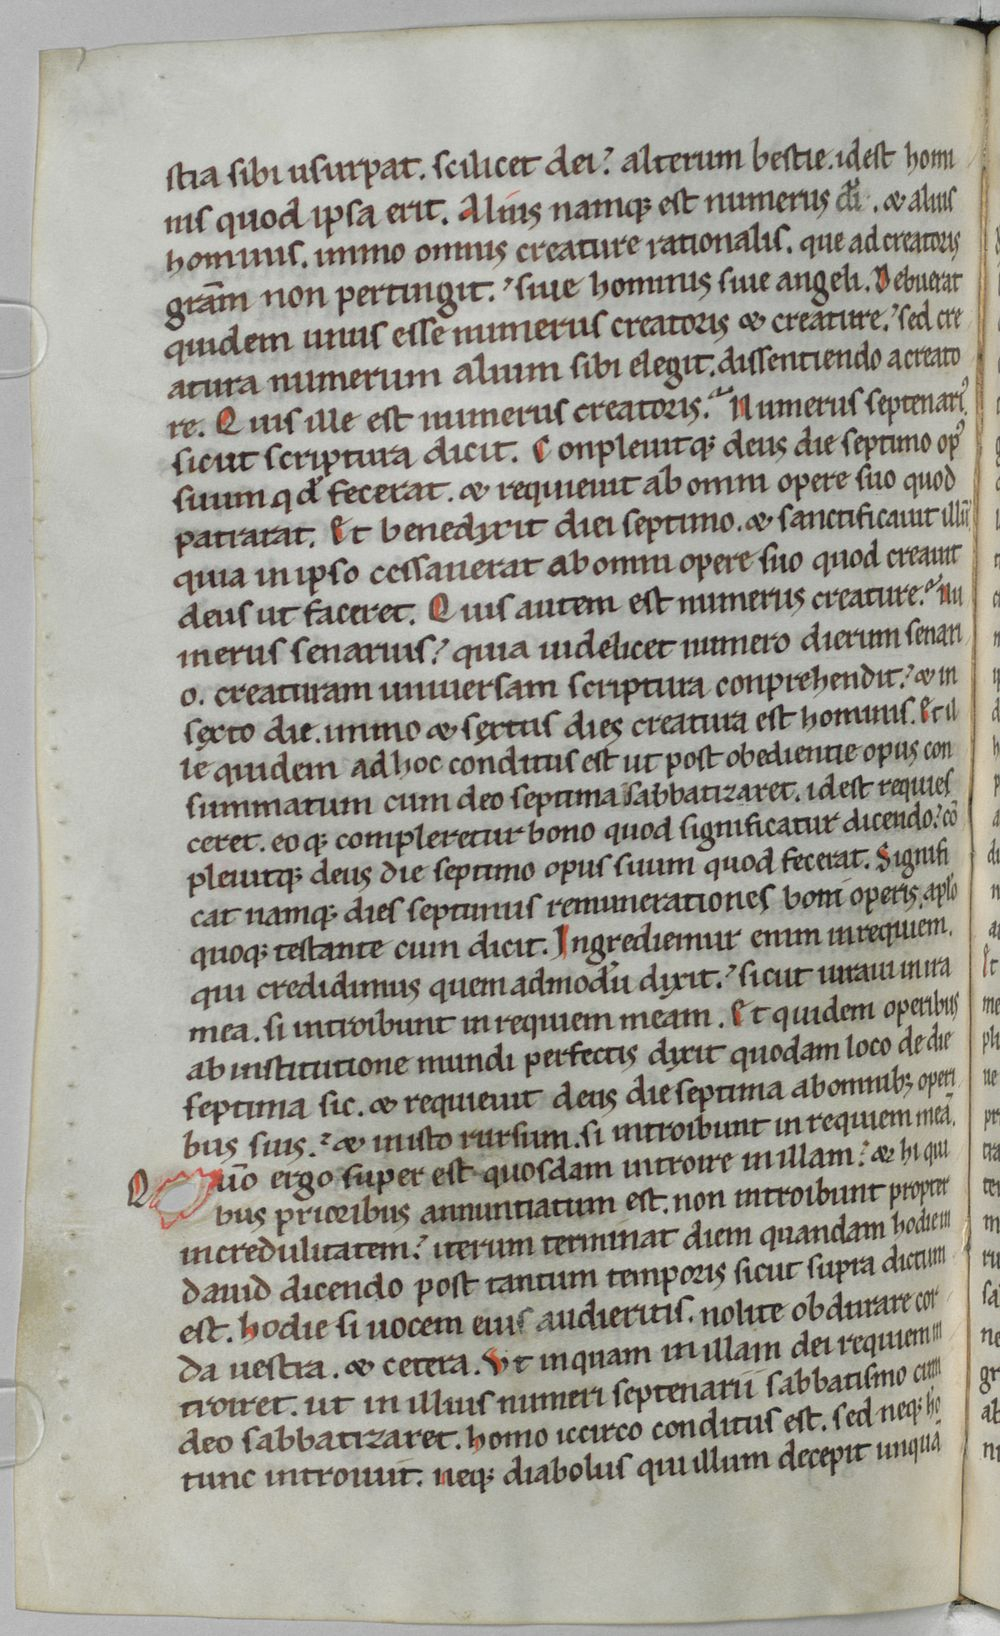 stia sibi usurpat. scilicet dei? alterum bestie. idest homi
nis quod ipsa erit. Alius namq; est numerus d̄i. & alius
hominis. immo omnis creature rationalis. que ad creatoris
grām non pertingit. siue hominis siue angeli. Debuerat
quidem unus esse numerus creatoris & creature. sed cre
atura numerum alium sibi elegit. dissentiendo a creato
re. Quis ille est numerus creatoris? Numerus septenari᾽.
sicut scriptura dicit. Conpleuitq; deus die septimo op᾽
suum qd̄ fecerat. & requieuit ab omni opere suo quod
patrarat. Et benedixit diei septimo. & sanctificauit illū
quia in ipso cessauerat ab omni opere suo quod creauit
deus ut faceret. Quis autem est numerus creature? Nu
merus senarius? quia uidelicet numero dierum senari
o. creaturam uniuersam scriptura conprehendit? & in
sexto die. immo & sextus dies creatura est hominis. Et il
le quidem ad hoc conditus est ut post obedientie opus con
summatum cum deo septima sabbatizaret. idest requies
ceret. eoq; compleretur bono quod significatur dicendo? cō
pleuitq; deus die septimo opus suum quod fecerat. Signifi
cat namq; dies septimus remunerationes boni operis. aplo
quoq; testante cum dicit. Ingrediemur enim in requiem.
qui credidimus quem admodū dixit? sicut iuraui in ira
mea. si introibunt in requiem meam. Et quidem operibus
ab institutione mundi perfectis dixit quodam loco de die
septima sic. & requieuit deus die septima ab omnib; operi
bus suis? & in isto rursum. si introibunt in requiem meā.
Q uō ergo super est quosdam introire in illam? & hi qui
bus prioribus annuntiatum est. non introibunt propter
incredulitatem? iterum terminat diem quandam hodiem
dauid dicendo post tantum temporis sicut supra dictum
est. hodie si uocem eius audieritis. nolite obdurare cor
da uestra. & cetera. Ut inquam in illam dei requiem in
troiret. ut in illius numeri septenarii sabbatismo cum
deo sabbatizaret. homo iccirco conditus est. sed neq; ho
tunc introiuit. neq; diabolus qui illum decepit unquā